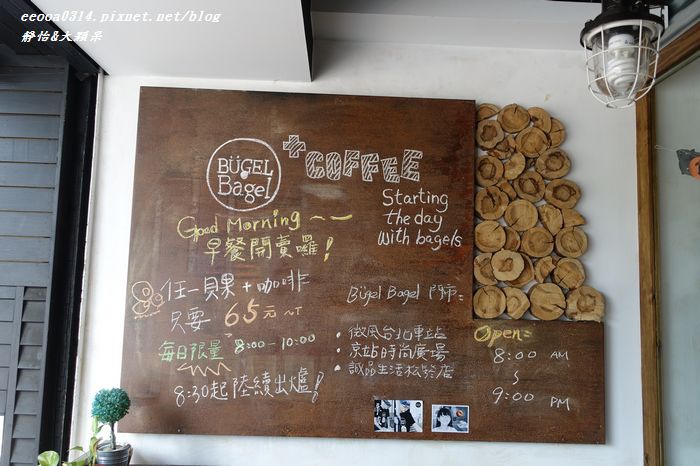 eeooa0314.pixnet.net/blog
靜怡&大顆呆
BÜGEL
Bagel
+COFFEE
Starting
the day
with bagels
Good Morning ~~
早餐開賣囉!
任一貝果+咖啡
只要 65元 NT
每日限量 8:00-10:00
8:30起陸續出爐!
Bügel Bagel 門市:
• 微風台北車站
• 京站時尚廣場
• 誠品生活松菸店
Open:
8:00 AM
~
9:00 PM